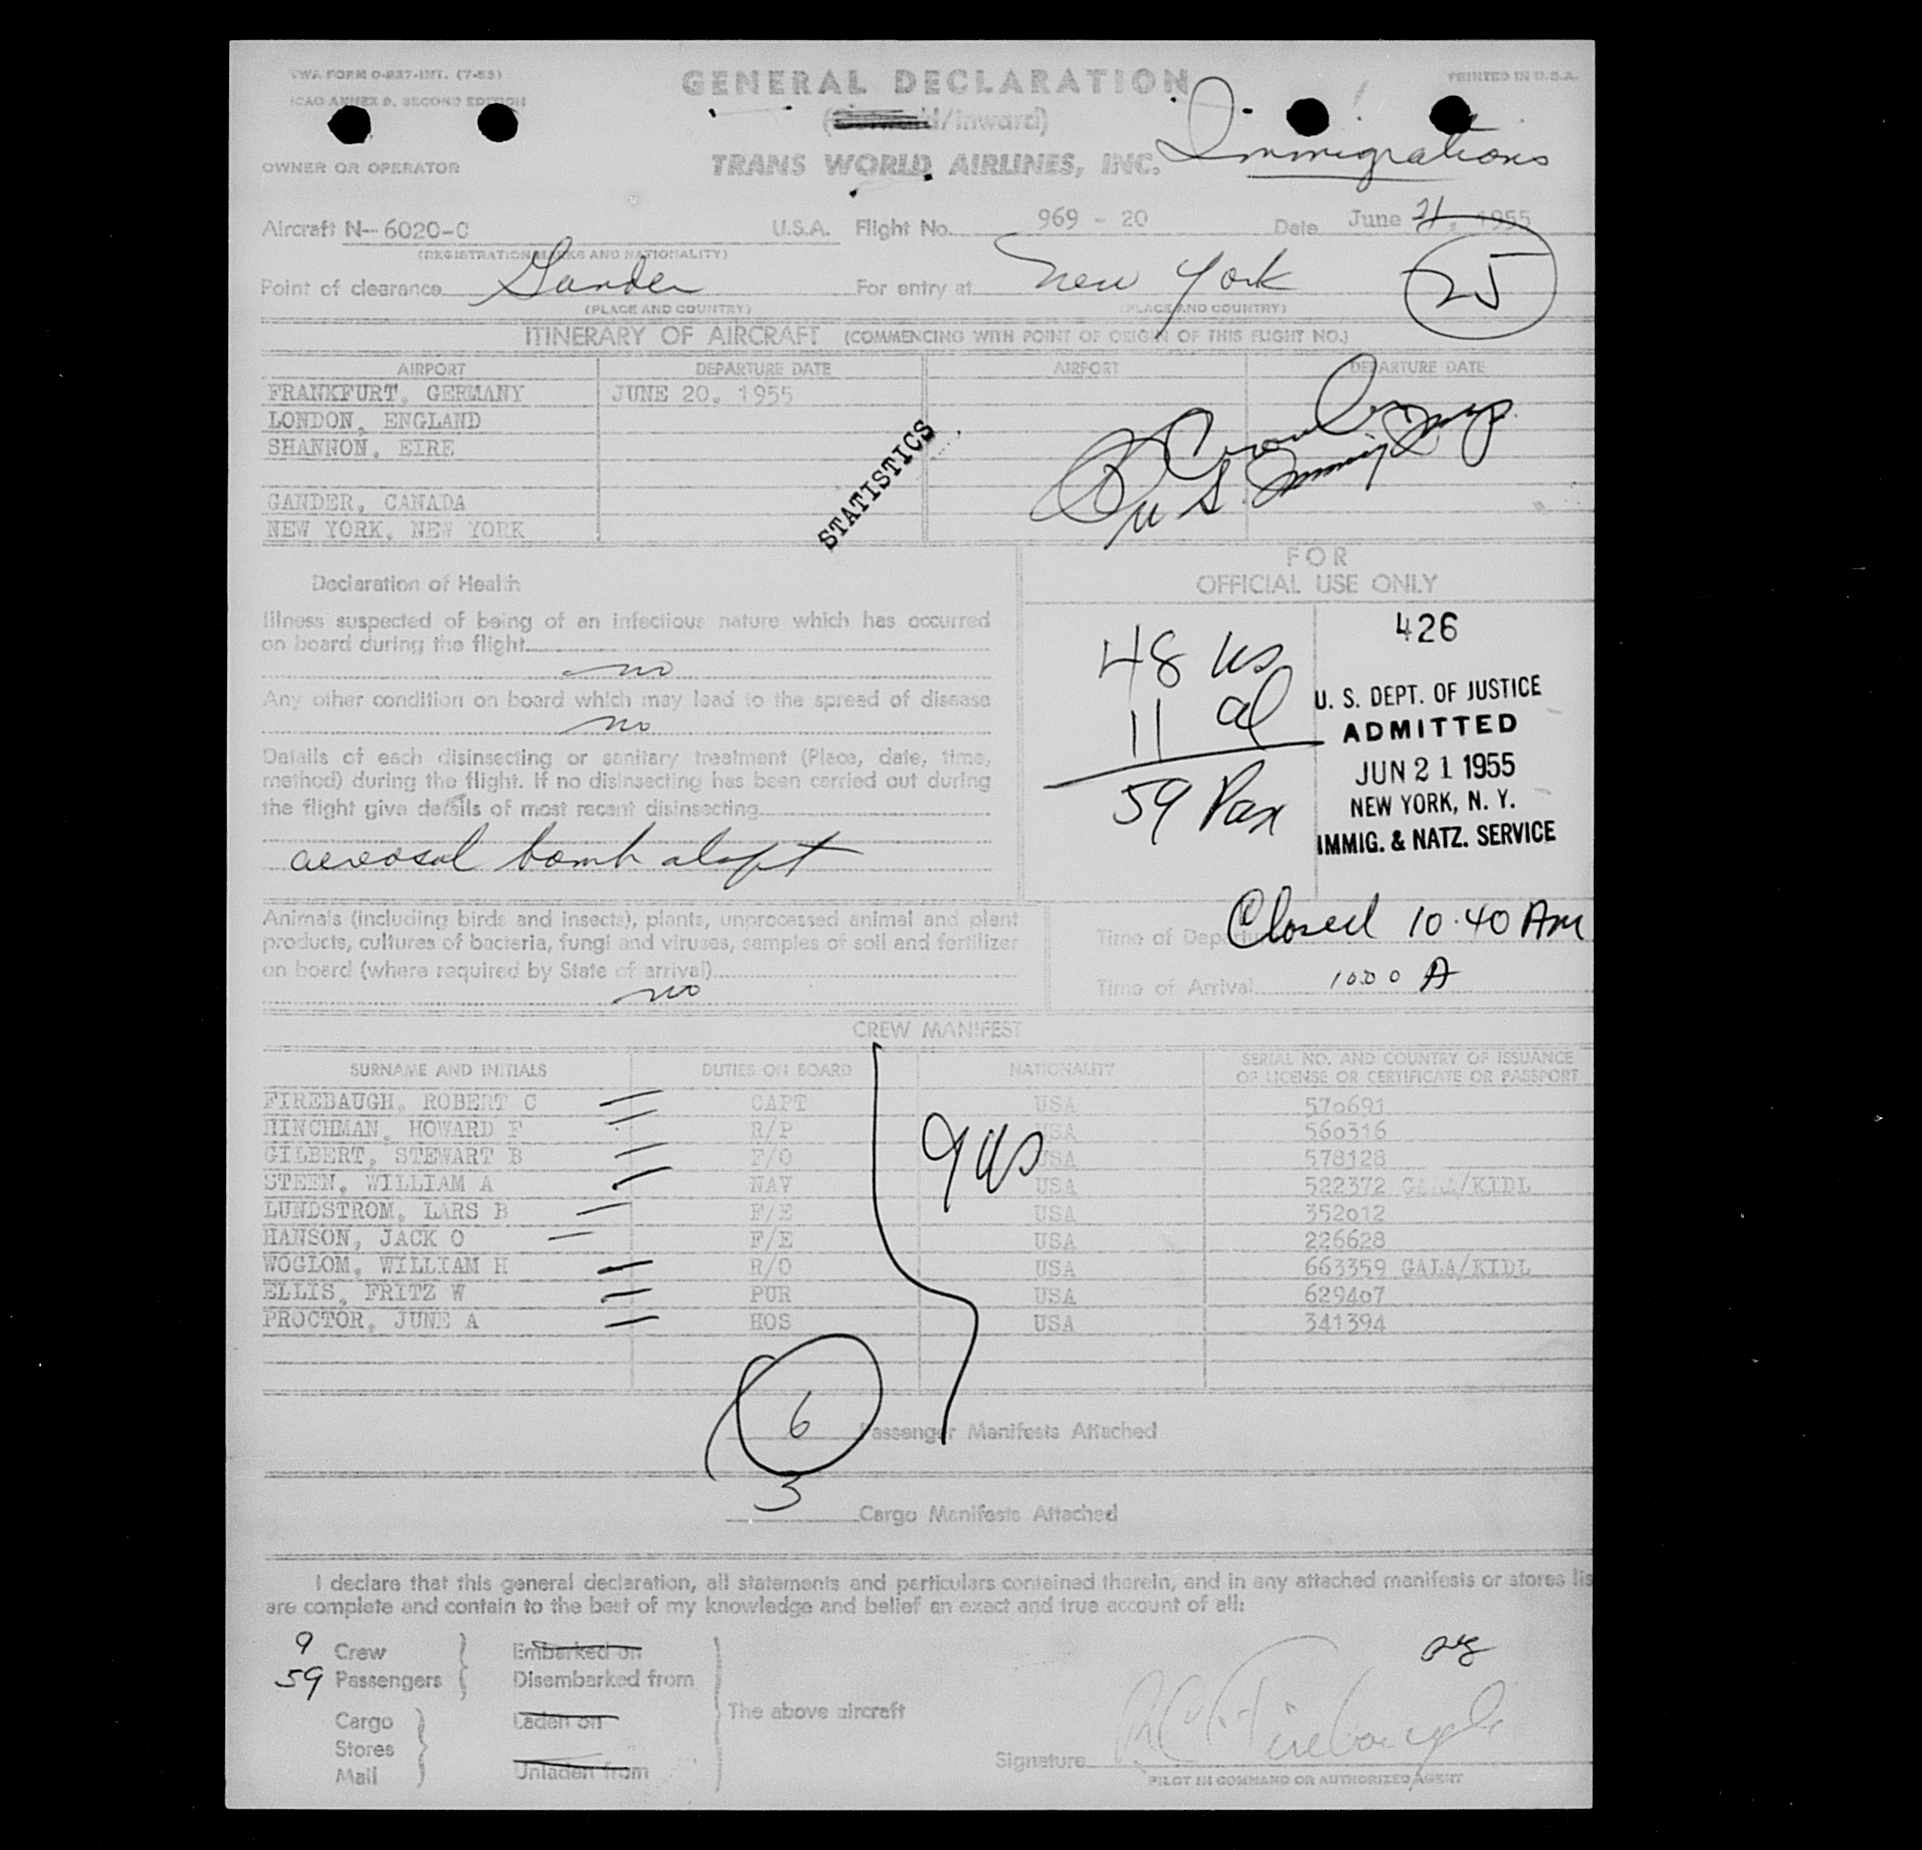 TWA FORM O-837-INT. (7-53)
PRINTED IN U.S.A.
ICAO ANNEX 9, SECOND EDITION
GENERAL DECLARATION
(Outward/Inward)
Immigrations
OWNER OR OPERATOR
TRANS WORLD AIRLINES, INC.
Aircraft N-6020-C U.S.A. Flight No. 969 - 20 Date June 21, 1955
(REGISTRATION MARKS AND NATIONALITY)
Point of clearance Gander For entry at New York
25
(PLACE AND COUNTRY) (PLACE AND COUNTRY)
ITINERARY OF AIRCRAFT (COMMENCING WITH POINT OF ORIGIN OF THIS FLIGHT NO.)
AIRPORT DEPARTURE DATE AIRPORT DEPARTURE DATE
FRANKFURT, GERMANY JUNE 20, 1955
LONDON, ENGLAND
SHANNON, EIRE
GANDER, CANADA
NEW YORK, NEW YORK
STATISTICS
U S Immig Insp.
Declaration of Health
Illness suspected of being of an infectious nature which has occurred
on board during the flight
no
Any other condition on board which may lead to the spread of disease
no
Details of each disinsecting or sanitary treatment (Place, date, time,
method) during the flight. If no disinsecting has been carried out during
the flight give details of most recent disinsecting
aerosol bomb
FOR
OFFICIAL USE ONLY
48 us
11 al
59 Pax
426
U. S. DEPT. OF JUSTICE
ADMITTED
JUN 21 1955
NEW YORK, N. Y.
IMMIG. & NATZ. SERVICE
Animals (including birds and insects), plants, unprocessed animal and plant
products, cultures of bacteria, fungi and viruses, samples of soil and fertilizer
on board (where required by State of arrival)
no
Time of Departure Closed 10.40 AM
Time of Arrival 1000 A
CREW MANIFEST
SURNAME AND INITIALS DUTIES ON BOARD NATIONALITY SERIAL NO. AND COUNTRY OF ISSUANCE
OF LICENSE OR CERTIFICATE OR PASSPORT
FIREBAUGH, ROBERT C CAPT USA 570691
HINCHMAN, HOWARD F R/P USA 560316
GILBERT, STEWART B F/O USA 578128
STEEN, WILLIAM A NAV USA 522372 GALA/KIDL
LUNDSTROM, LARS B F/E USA 352012
HANSON, JACK O F/E USA 226628
WOGLOM, WILLIAM H R/O USA 663359 GALA/KIDL
ELLIS, FRITZ W PUR USA 629407
PROCTOR, JUNE A HOS USA 341394
9 US
6 Passenger Manifests Attached
3 Cargo Manifests Attached
I declare that this general declaration, all statements and particulars contained therein, and in any attached manifests or stores lis
are complete and contain to the best of my knowledge and belief an exact and true account of all:
9 Crew Embarked on
59 Passengers Disembarked from
Cargo Laden on The above aircraft
Stores
Mail Unladen from
Signature R C Firebaugh
PILOT IN COMMAND OR AUTHORIZED AGENT